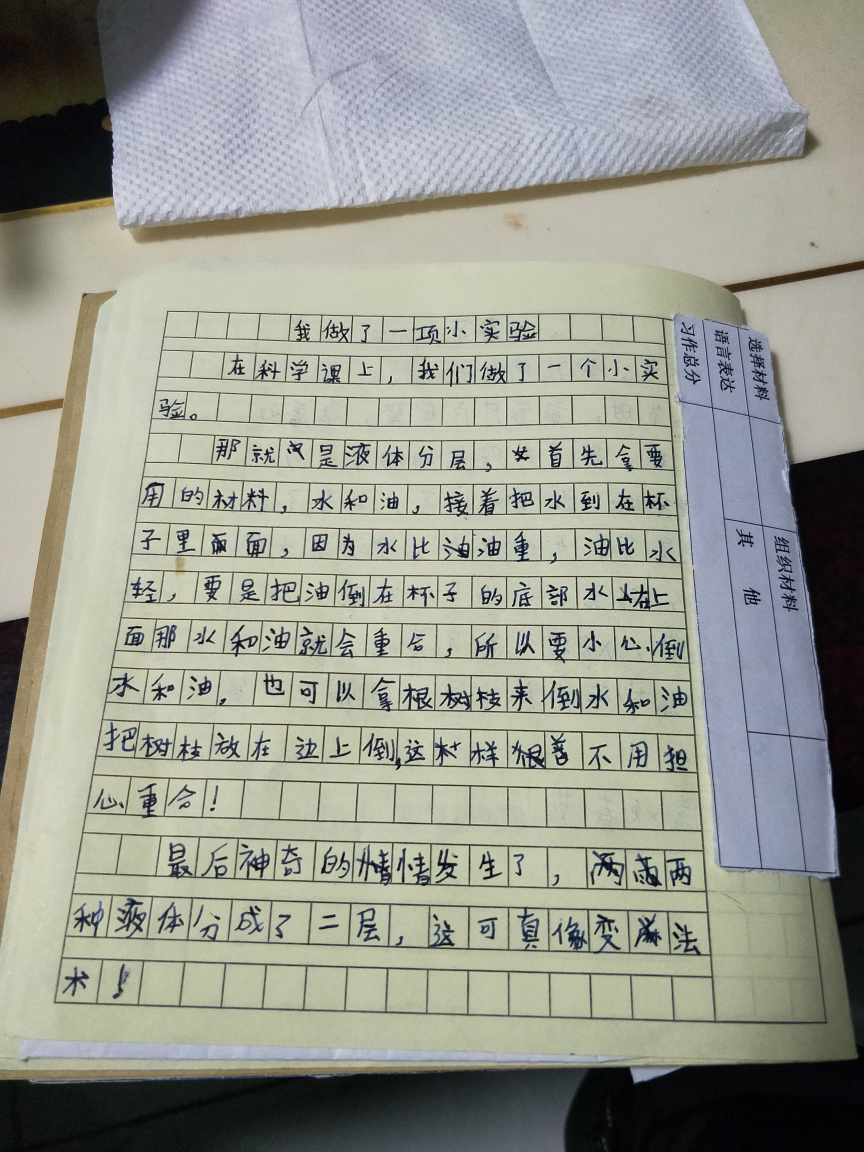 我做了一项小实验
在科学课上，我们做了一个小实
验。
那就是液体分层，首先拿要
用的材料，水和油，接着把水到在杯
子里面，因为水比油重，油比水
轻，要是把油倒在杯子的底部水在上
面那水和油就会重合，所以要小心倒
水和油，也可以拿根树枝来倒水和油
把树枝放在边上倒，这样不用担
心重合！
最后神奇的情发生了，两
种液体分成了二层，这可真像变法
术！
选择材料
语言表达
习作总分
组织材料
其他